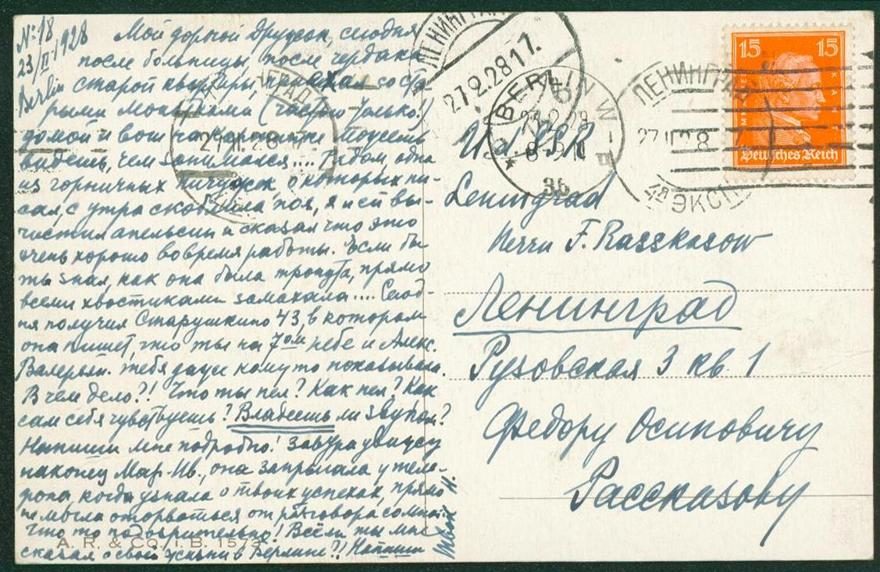 № 18
23/II 1928
Berlin
Мой дорогой Дружок, сегодня
после больницы, после чердака
старой квартиры, приехал со ста-
рыми монатками (частью только!)
домой и вот на картинке
видишь, чем занимался.... Рядом одна
из горничных пичужек, о которых пи-
сал, с утра скоблила пол, я ей вы-
чистил апельсин и сказал что это
очень хорошо во время работы. Если бы
ты знал, как она была тронута, прямо
всеми хвостиками замахала.... Сегод-
ня получил Старушкино 43, в котором
она пишет, что ты на 7ом небе и Алекс.
Валерьян. тебя даже кому то показывал.
В чем дело?! Что ты пел? Как пел? Как
сам себя чувствуешь? Владеешь ли звуком?
Напиши мне подробно! Завтра увижу
наконец Мар. Ив., она запрыгала у теле-
фона, когда узнала о твоих успехах, прямо
не могла оторваться от разговора со мной.
Что то подозрительно! Всё ли ты мне
сказал о своей жизни в Берлине?! Напиши
Твой Н.
A. R. & CO. I. B. 1573
ЛЕНИНГРАД
27.2.28 17.
BERLIN NW
23.2.28
8-9 N
* 36
ЛЕНИНГРАД
27.II.28
ЭКСП
27.II.28
15 15
Deutsches Reich
U.d.SSR
Leningrad
Herrn F. Rasskasow
Ленинград
Рузовская 3 кв 1
Федору Осиповичу
Рассказову